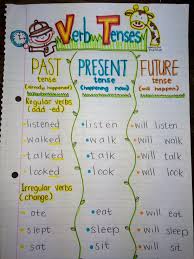 Verb Tenses
PAST PRESENT FUTURE
tense tense tense
(already happened) (happening now) (will happen)
Regular verbs
(add -ed)
listened •listen •will listen
walked •walk •will walk
talked •talk •will talk
looked •look •will look
Irregular verbs
(change)
ate •eat •will eat
slept •sleep •will sleep
sat •sit •will sit